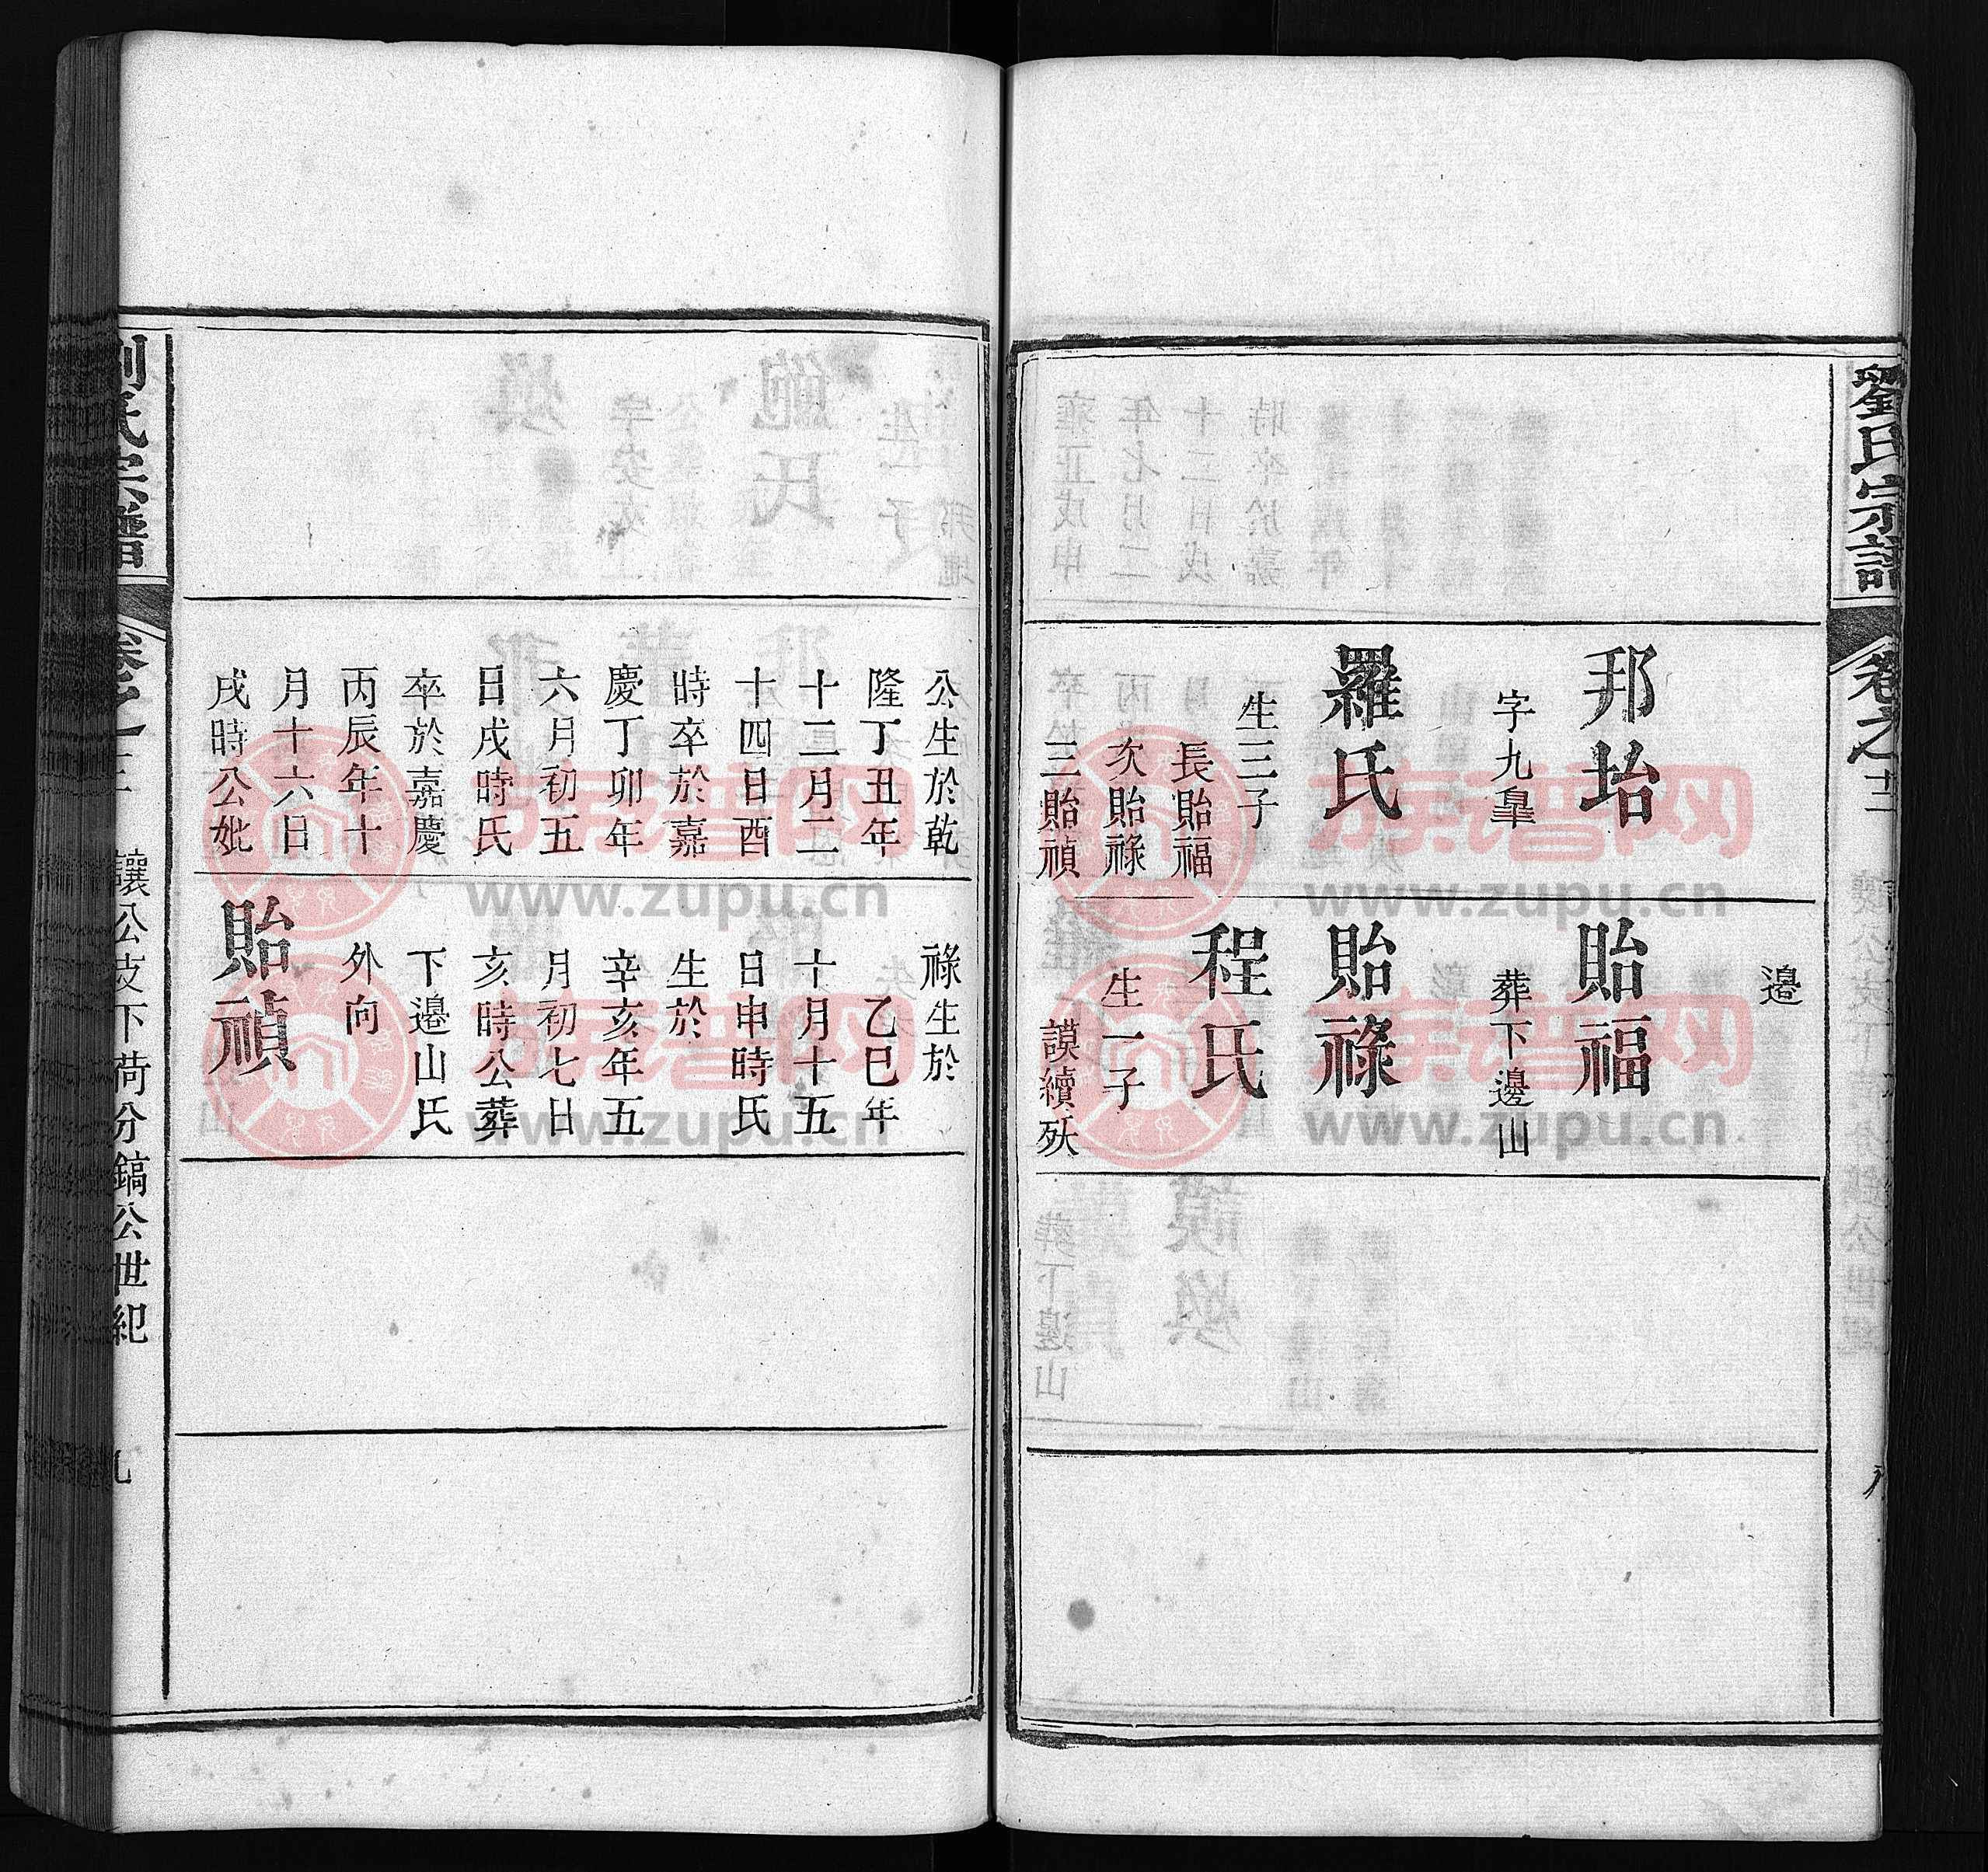 劉氏宗譜
卷之十二
邦坮
字九臯
羅氏
生三子
長貽福
次貽祿
三貽禎
邉
貽福
葬下邉山
貽祿
程氏
生一子
謨續殀
公生於乾
隆丁丑年
十二月二
十四日酉
時卒於嘉
慶丁卯年
六月初五
日戌時氏
卒於嘉慶
丙辰年十
月十六日
戌時公妣
祿生於
乙巳年
十月十五
日申時氏
生於
辛亥年五
月初七日
亥時公葬
下邉山氏
外向
貽禎
氏宗譜
讓公支下荷分鎬公世紀
九
族谱网
www.zupu.cn
族谱网
www.zupu.cn
族谱网
www.zupu.cn
族谱网
www.zupu.cn